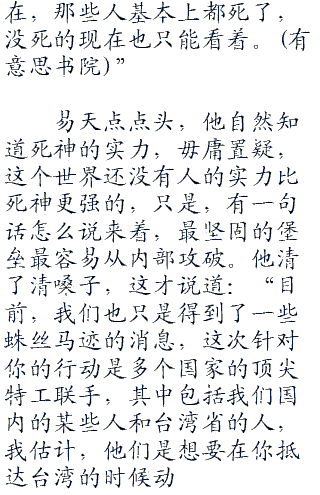 在，那些人基本上都死了，
没死的现在也只能看着。(有
意思书院)”
易天点点头，他自然知
道死神的实力，毋庸置疑，
这个世界还没有人的实力比
死神更强的，只是，有一句
话怎么说来着，最坚固的堡
垒最容易从内部攻破。他清
了清嗓子，这才说道：“目
前，我们也只是得到了一些
蛛丝马迹的消息，这次针对
你的行动是多个国家的顶尖
特工联手，其中包括我们国
内的某些人和台湾省的人，
我估计，他们是想要在你抵
达台湾的时候动